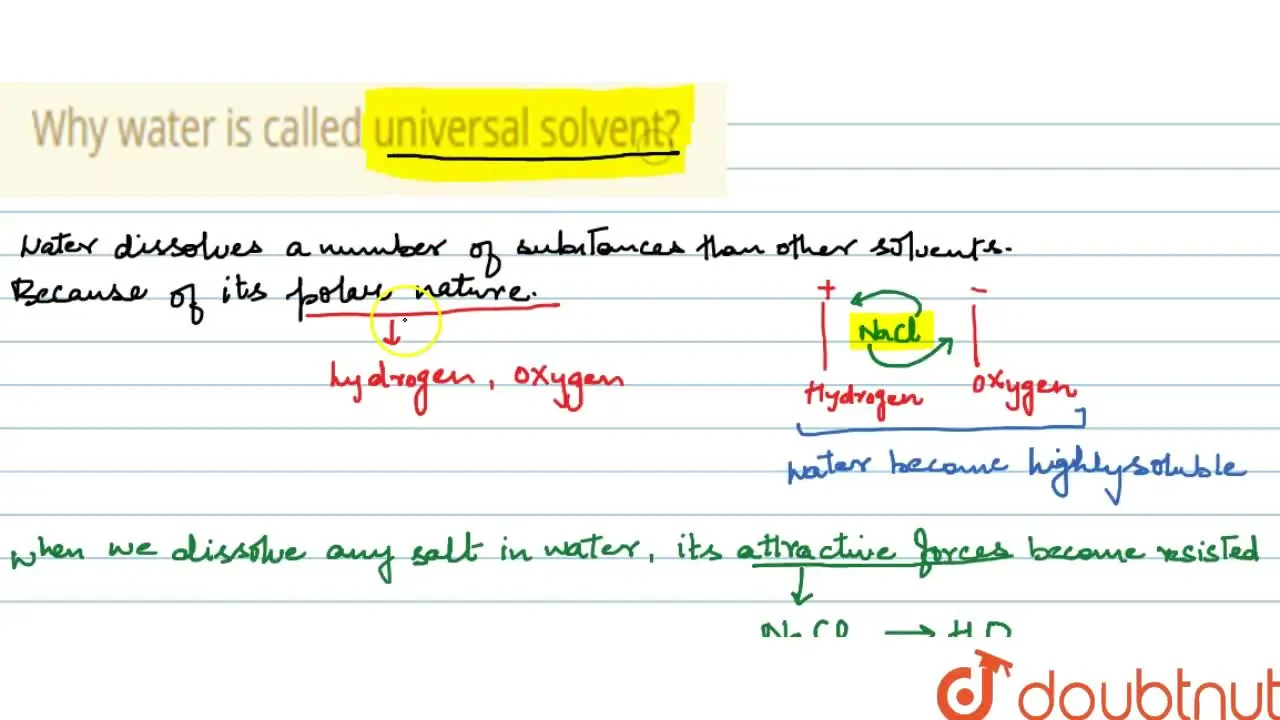 Why water is called universal solvent?
Water dissolves a number of substances than other solvents.
Because of its polar nature.
hydrogen, oxygen
+ -
NaCl
Hydrogen Oxygen
Water become highly soluble
When we dissolve any salt in water, its attractive forces become resisted
NaCl → H2O
doubtnut